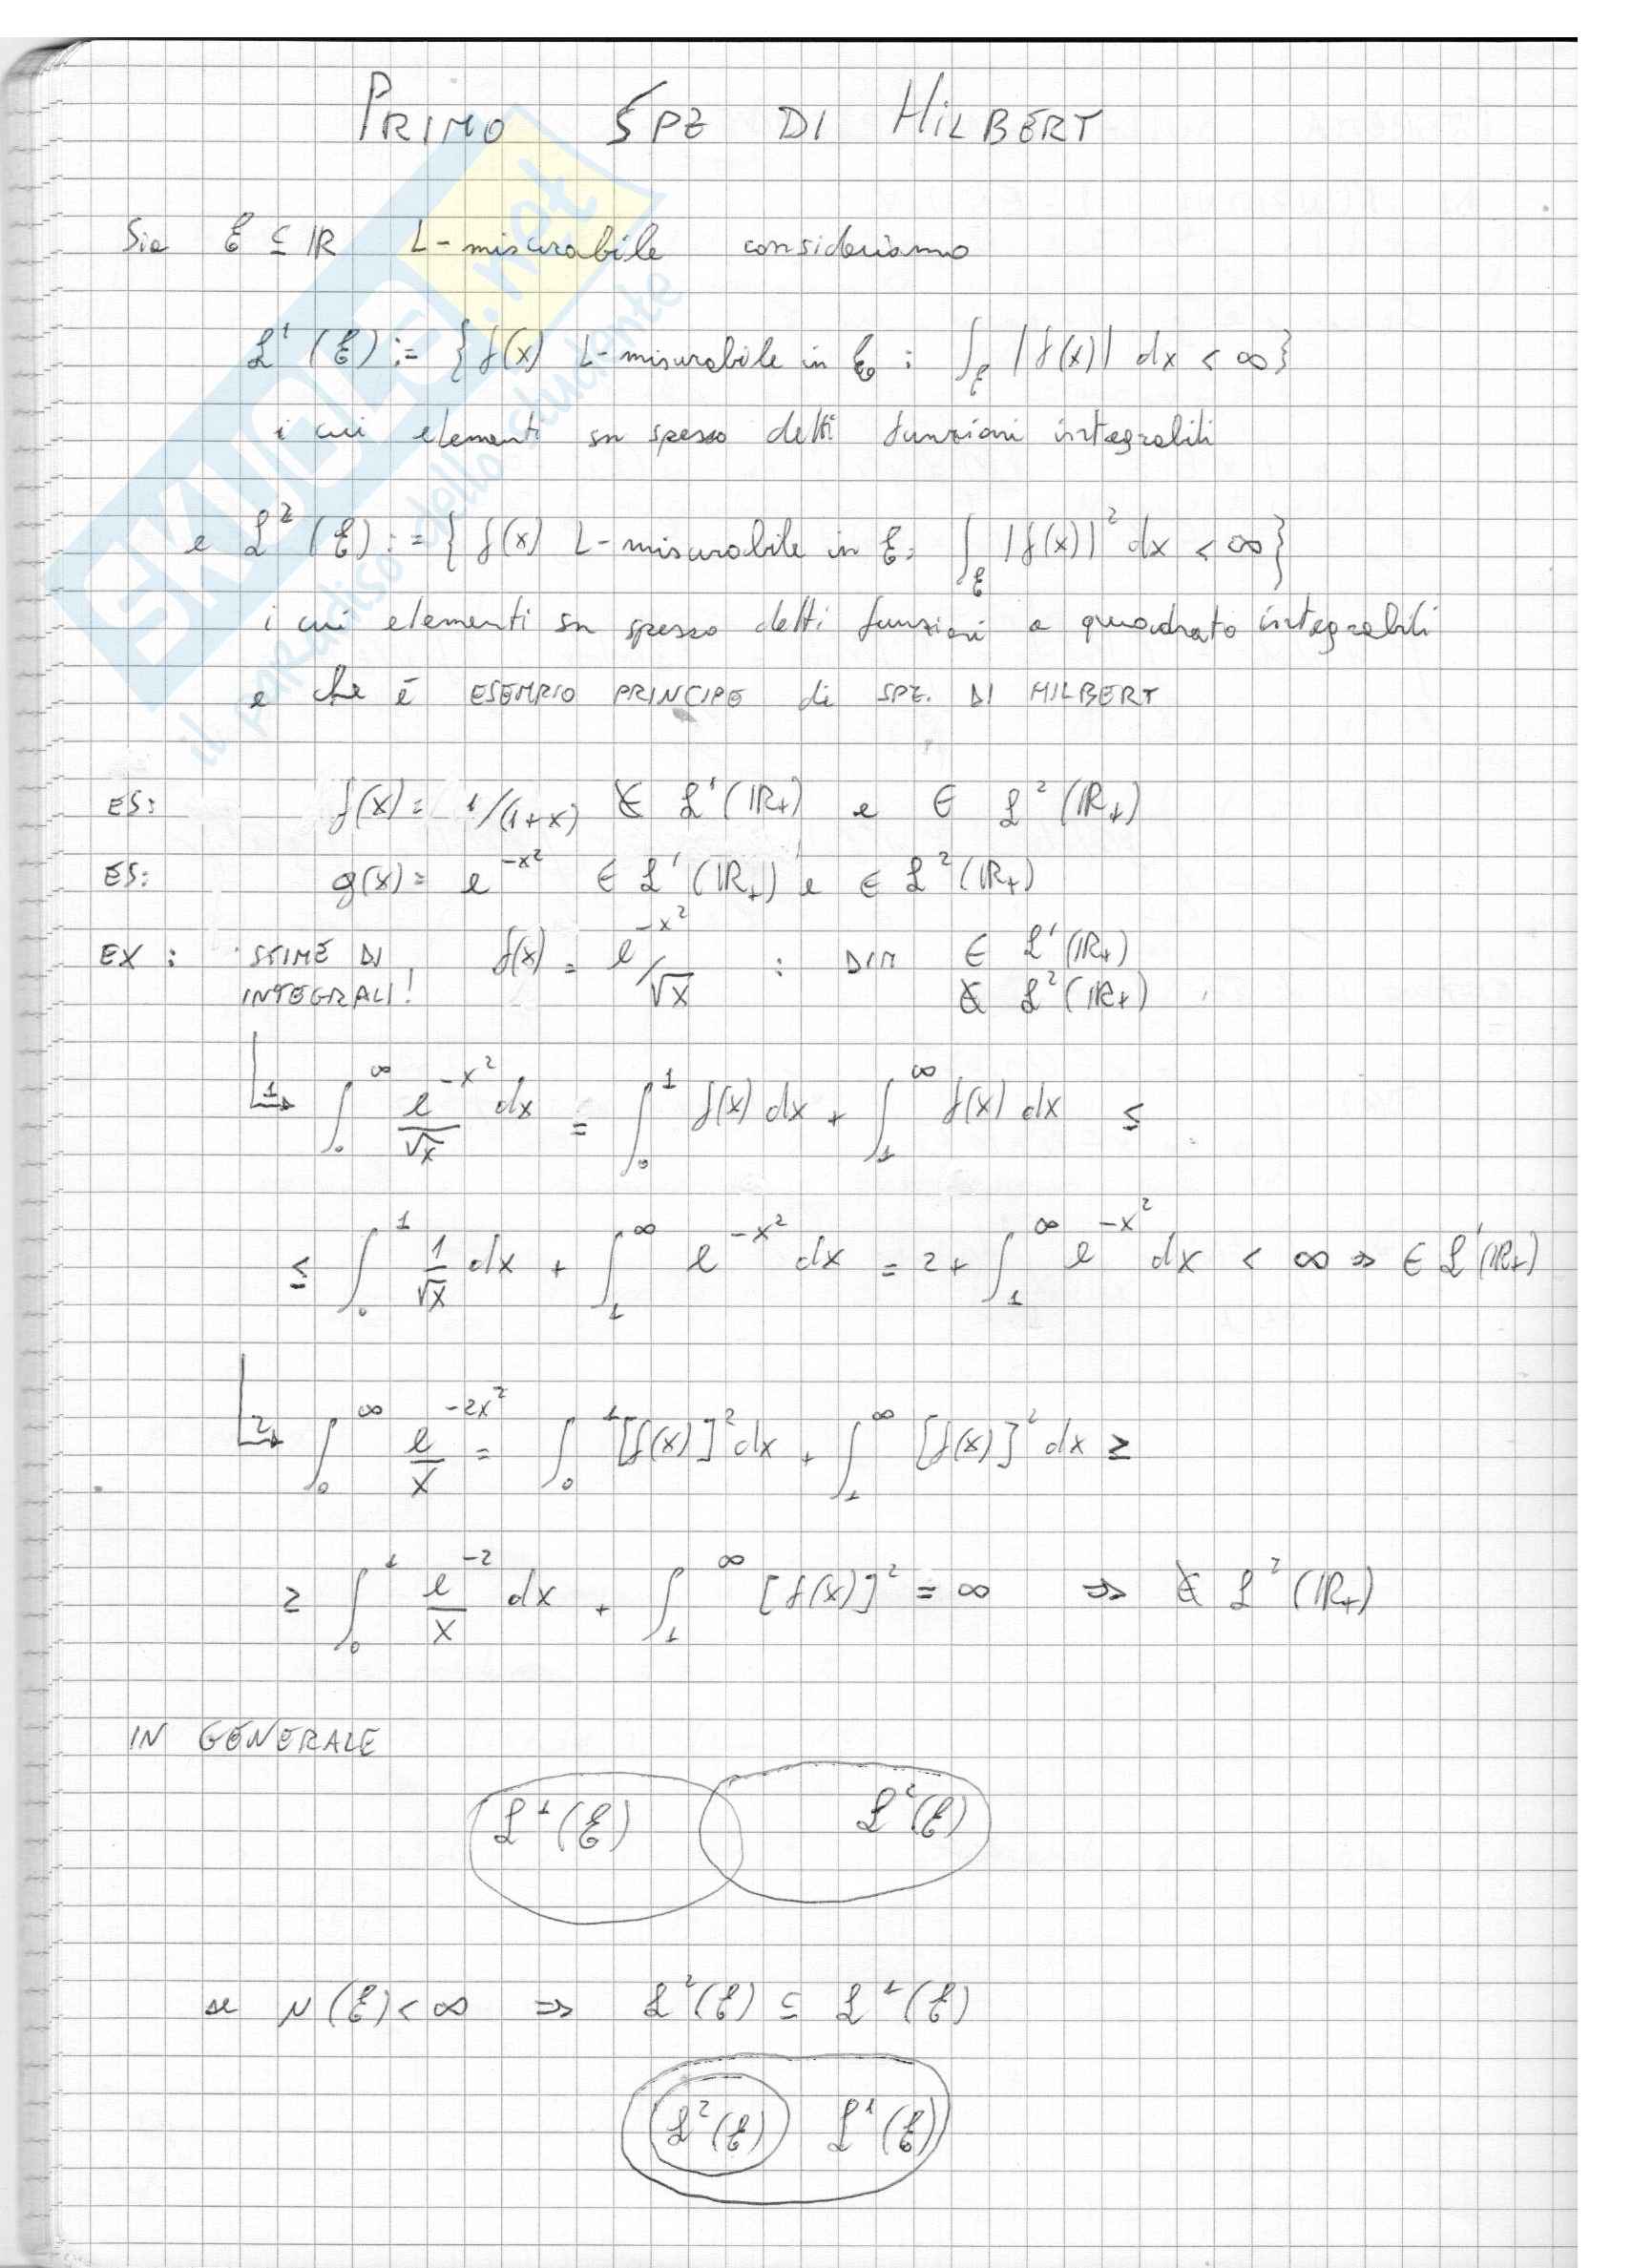 PRIMO SPZ DI HILBERT
Sia E ⊆ ℝ L-misurabile consideriamo
L¹(E) := {f(x) L-misurabile in E : ∫_E |f(x)| dx < ∞}
i cui elementi sn spesso detti funzioni integrabili
e L²(E) := {f(x) L-misurabile in E: ∫_E |f(x)|² dx < ∞}
i cui elementi sn spesso detti funzioni a quadrato integrabili
e che è ESEMPIO PRINCIPE di SPZ. DI HILBERT
ES: f(x) = 1/(1+x) ∉ L¹(ℝ₊) e ∈ L²(ℝ₊)
ES: g(x) = e^{-x²} ∈ L¹(ℝ₊) e ∈ L²(ℝ₊)
EX: STIME DI INTEGRALI! f(x) = e^{-x²}/√x : DIM ∈ L¹(ℝ₊)
∉ L²(ℝ₊)
1→ ∫₀^∞ e^{-x²}/√x dx = ∫₀¹ f(x) dx + ∫₁^∞ f(x) dx ≤
≤ ∫₀¹ 1/√x dx + ∫₁^∞ e^{-x²} dx = 2 + ∫₁^∞ e^{-x²} dx < ∞ ⇒ ∈ L¹(ℝ₊)
2→ ∫₀^∞ e^{-2x²}/x = ∫₀¹ [f(x)]² dx + ∫₁^∞ [f(x)]² dx ≥
≥ ∫₀¹ e^{-2}/x dx + ∫₁^∞ [f(x)]² = ∞ ⇒ ∉ L²(ℝ₊)
IN GENERALE
L¹(E) L²(E)
se μ(E) < ∞ ⇒ L²(E) ⊆ L¹(E)
L²(E) L¹(E)
SKUOLA.net
il paradiso dello studente